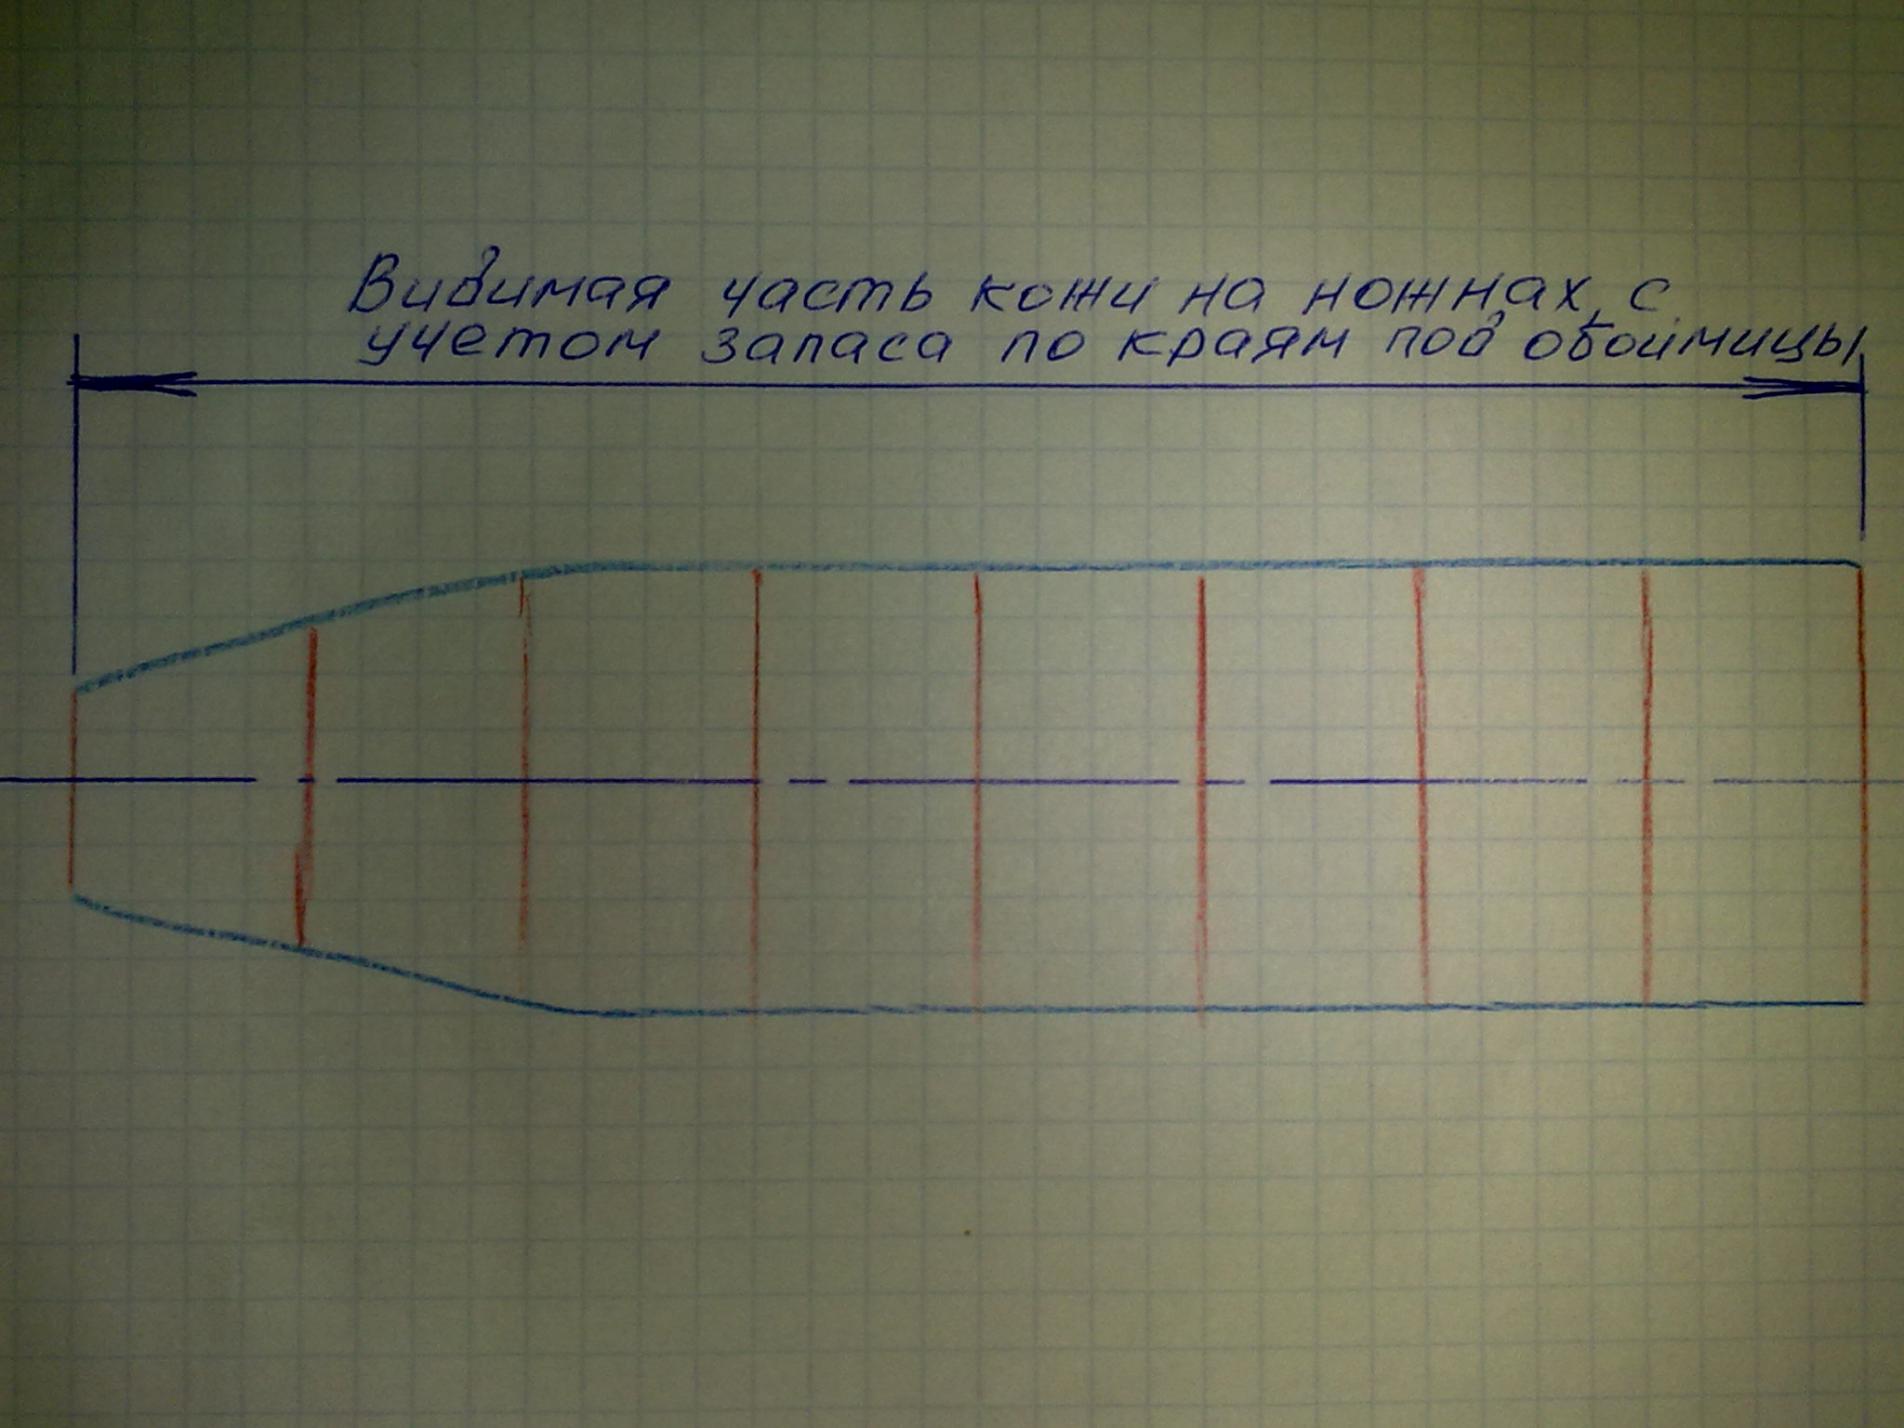 Видимая часть кожи на ножнах, с
учетом запаса по краям под обоймицы